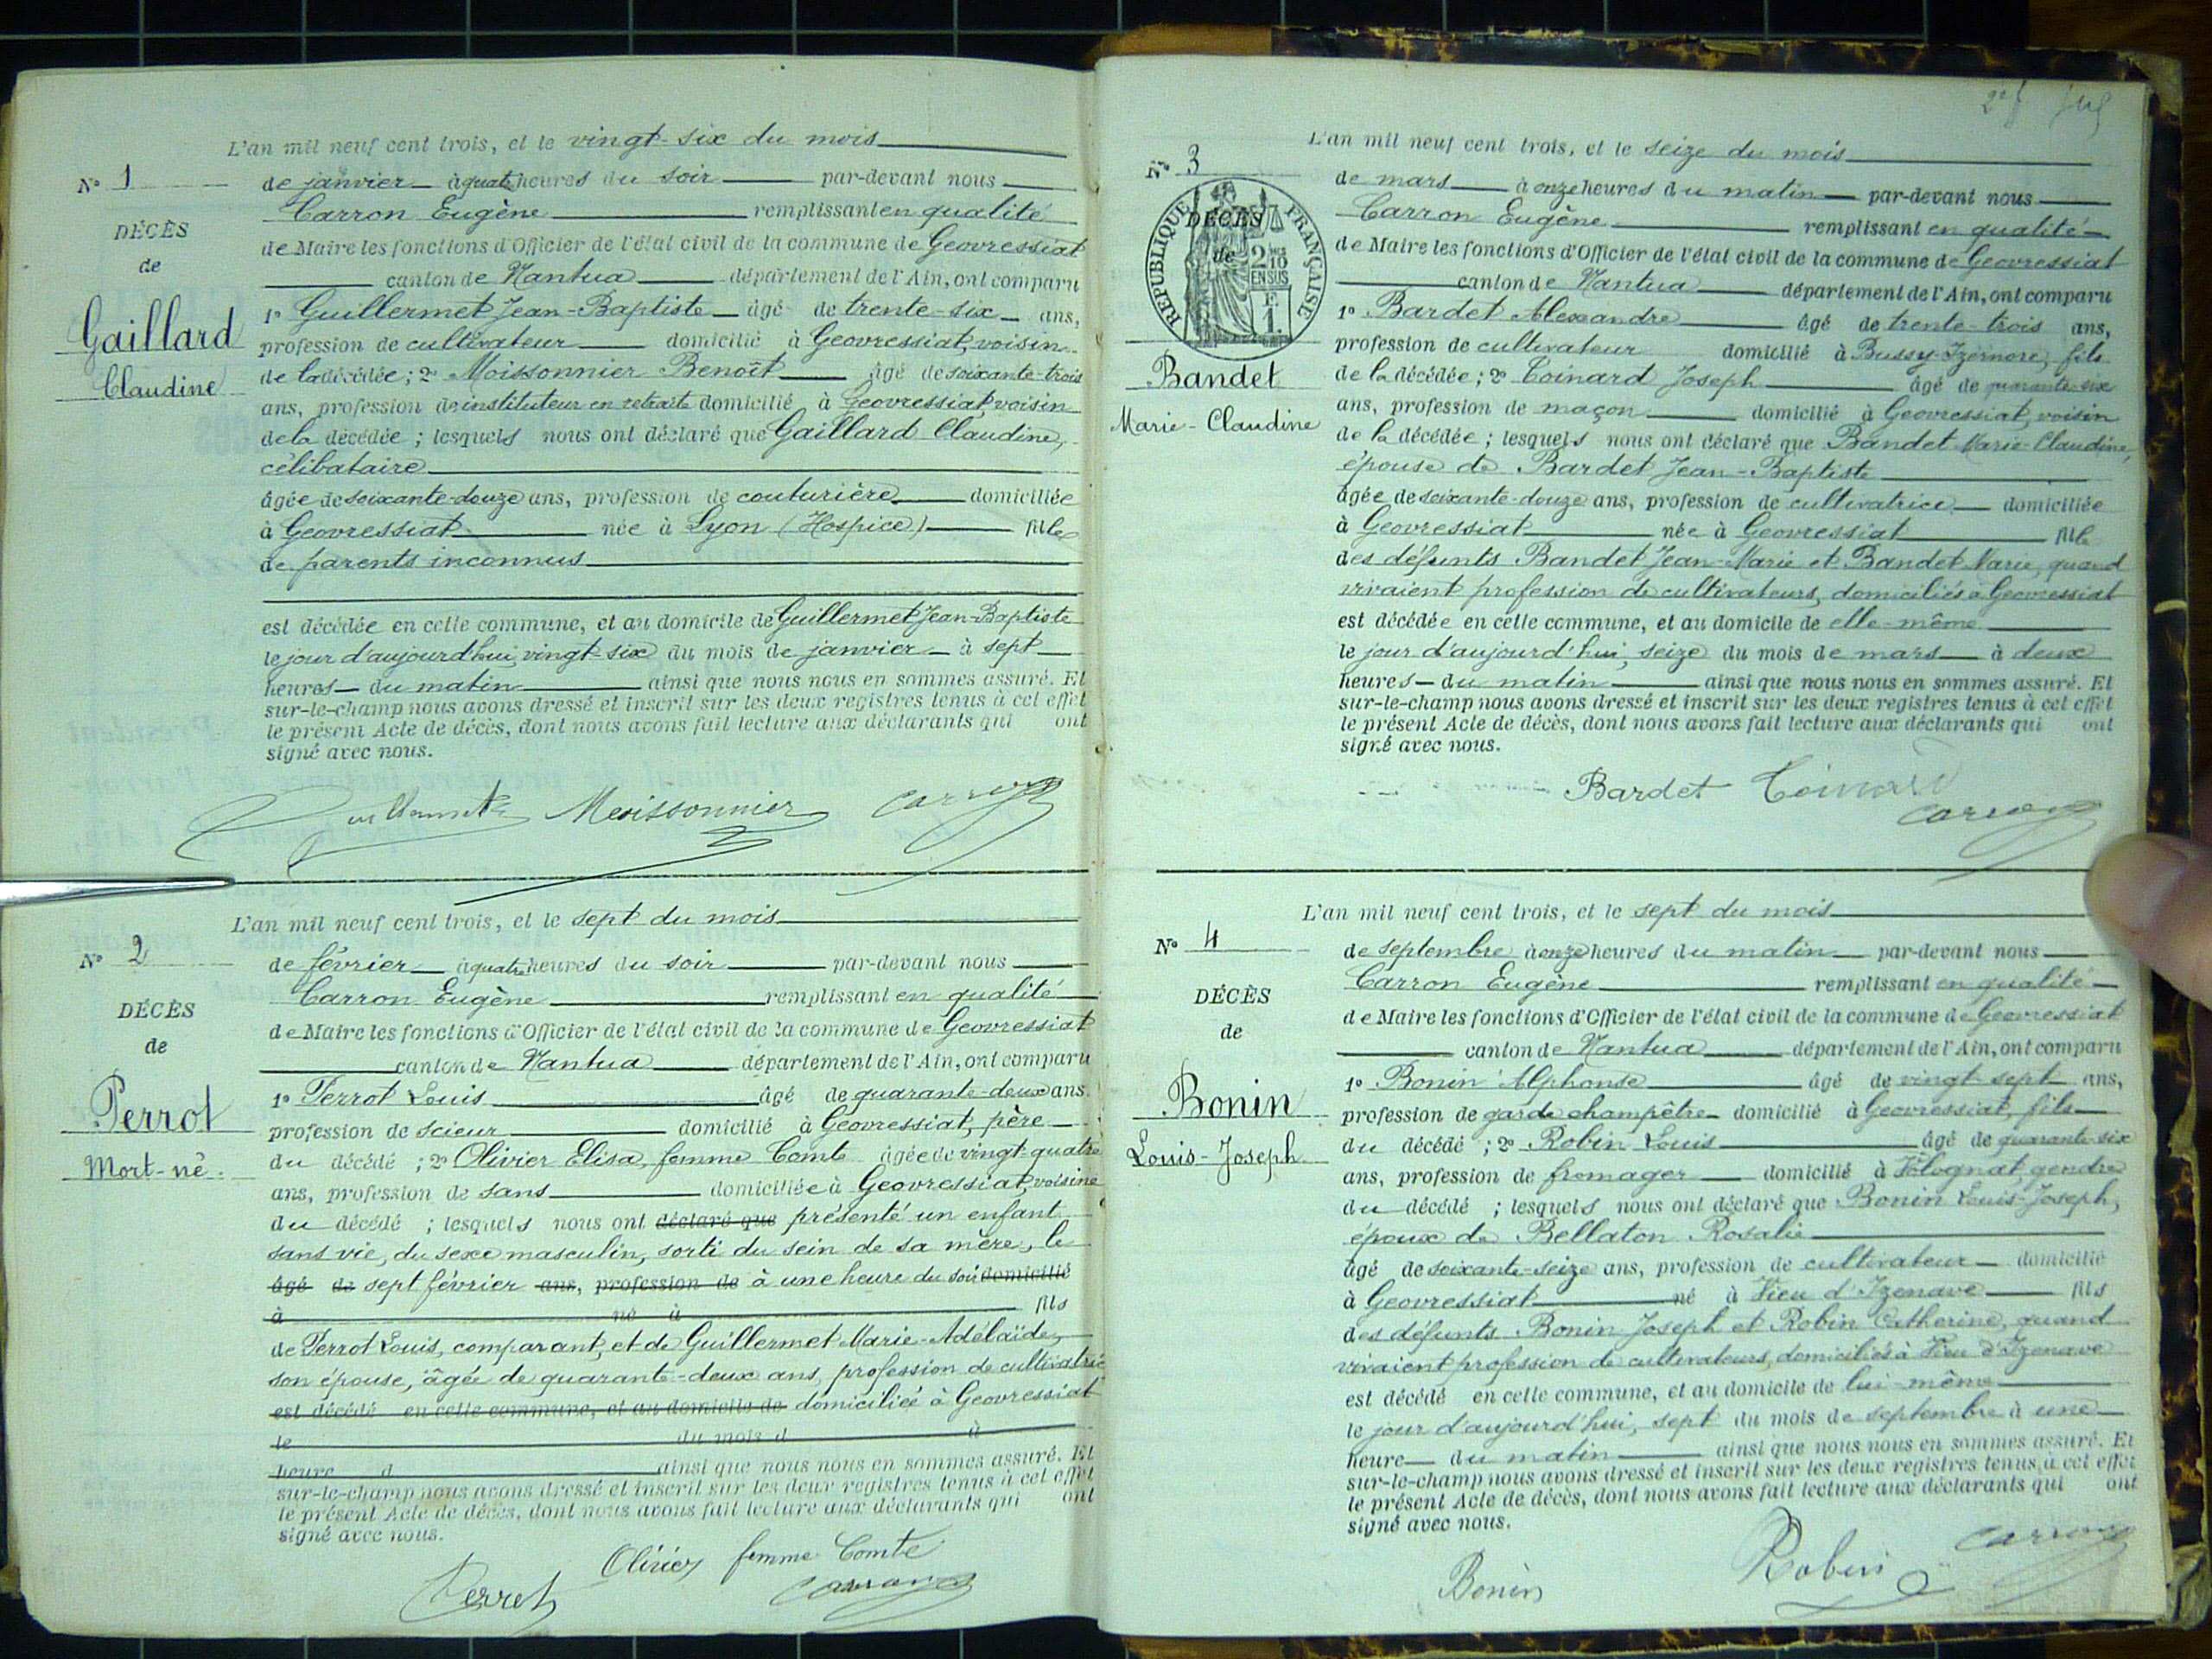 L'an mil neuf cent trois, et le vingt-six du mois
N° 1
de janvier à quatre heures du soir par-devant nous
Carron Eugène remplissant en qualité
DÉCÈS
de Maire les fonctions d'Officier de l'état civil de la commune de Geovressiat
de
canton de Nantua département de l'Ain, ont comparu
Gaillard
Claudine
1° Guillermet Jean-Baptiste âgé de trente-six ans,
profession de cultivateur domicilié à Geovressiat, voisin
de la décédée ; 2° Moissonnier Benoît âgé de soixante-trois
ans, profession de instituteur en retraite domicilié à Geovressiat, voisin
de la décédée ; lesquels nous ont déclaré que Gaillard Claudine,
célibataire
âgée de soixante-douze ans, profession de couturière domiciliée
à Geovressiat née à Lyon (Hospice) fille
de parents inconnus
est décédée en cette commune, et au domicile de Guillermet Jean-Baptiste
le jour d'aujourd'hui, vingt-six du mois de janvier à sept
heures du matin ainsi que nous nous en sommes assuré. Et
sur-le-champ nous avons dressé et inscrit sur les deux registres tenus à cet effet
le présent Acte de décès, dont nous avons fait lecture aux déclarants qui ont
signé avec nous.
Guillermet Moissonnier Carron
L'an mil neuf cent trois, et le sept du mois
N° 2
de février à quatre heures du soir par-devant nous
Carron Eugène remplissant en qualité
DÉCÈS
de Maire les fonctions d'Officier de l'état civil de la commune de Geovressiat
de
canton de Nantua département de l'Ain, ont comparu
Perrot
Mort-né
1° Perrot Louis âgé de quarante-deux ans
profession de scieur domicilié à Geovressiat, père
du décédé ; 2° Olivier Elisa, femme Comte âgée de vingt-quatre
ans, profession de sans domiciliée à Geovressiat, voisine
du décédé ; lesquels nous ont déclaré que présenté un enfant
sans vie, du sexe masculin, sorti du sein de sa mère, le
âgé de sept février ans, profession de à une heure du soir domicilié
à né à fils
de Perrot Louis, comparant, et de Guillermet Marie-Adélaïde,
son épouse, âgée de quarante-deux ans, profession de cultivatrice
est décédé en cette commune, et au domicile de domiciliée à Geovressiat
le du mois d à
heure d ainsi que nous nous en sommes assuré. Et
sur-le-champ nous avons dressé et inscrit sur les deux registres tenus à cet effet
le présent Acte de décès, dont nous avons fait lecture aux déclarants qui ont
signé avec nous.
Olivier femme Comte
Perrot Carron
L'an mil neuf cent trois, et le seize du mois
N° 3
de mars à onze heures du matin par-devant nous
Carron Eugène remplissant en qualité
DÉCÈS
de
RÉPUBLIQUE FRANÇAISE
2 10 EN SUS
F. 1.
de Maire les fonctions d'Officier de l'état civil de la commune de Geovressiat
canton de Nantua département de l'Ain, ont comparu
Bandet
Marie-Claudine
1° Bardet Alexandre âgé de trente-trois ans,
profession de cultivateur domicilié à Bussy-Izernore, fils
de la décédée ; 2° Coinard Joseph âgé de quarante-six
ans, profession de maçon domicilié à Geovressiat, voisin
de la décédée ; lesquels nous ont déclaré que Bandet Marie-Claudine,
épouse de Bardet Jean-Baptiste
âgée de soixante-douze ans, profession de cultivatrice domiciliée
à Geovressiat née à Geovressiat fille
des défunts Bandet Jean-Marie et Bandet Marie, quand
vivaient profession de cultivateurs, domiciliés à Geovressiat
est décédée en cette commune, et au domicile de elle-même
le jour d'aujourd'hui, seize du mois de mars à deux
heures du matin ainsi que nous nous en sommes assuré. Et
sur-le-champ nous avons dressé et inscrit sur les deux registres tenus à cet effet
le présent Acte de décès, dont nous avons fait lecture aux déclarants qui ont
signé avec nous.
Bardet Coinard
Carron
L'an mil neuf cent trois, et le sept du mois
N° 4
de septembre à onze heures du matin par-devant nous
Carron Eugène remplissant en qualité
DÉCÈS
de Maire les fonctions d'Officier de l'état civil de la commune de Geovressiat
de
canton de Nantua département de l'Ain, ont comparu
Bonin
Louis-Joseph
1° Bonin Alphonse âgé de vingt-sept ans,
profession de garde champêtre domicilié à Geovressiat, fils
du décédé ; 2° Robin Louis âgé de quarante-six
ans, profession de fromager domicilié à Volognat, gendre
du décédé ; lesquels nous ont déclaré que Bonin Louis-Joseph,
époux de Bellaton Rosalie
âgé de soixante-seize ans, profession de cultivateur domicilié
à Geovressiat né à Vieu d'Izenave fils
des défunts Bonin Joseph et Robin Catherine, quand
vivaient profession de cultivateurs, domiciliés à Vieu d'Izenave
est décédé en cette commune, et au domicile de lui-même
le jour d'aujourd'hui, sept du mois de septembre à une
heure du matin ainsi que nous nous en sommes assuré. Et
sur-le-champ nous avons dressé et inscrit sur les deux registres tenus à cet effet
le présent Acte de décès, dont nous avons fait lecture aux déclarants qui ont
signé avec nous.
Bonin Robin Carron